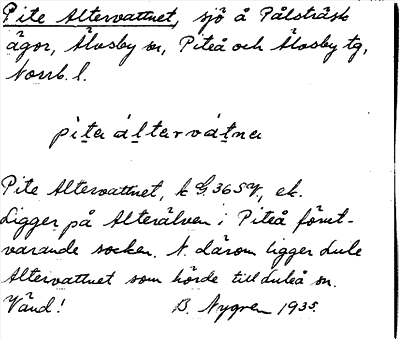 Pite Altervattnet, sjö å Pålsträsk
ägor, Älvsby sn, Piteå och Älvsby tg,
Norrb. l.
pita áltervátna
Pite Altervattnet, k G. 36 SV, ek.
Ligger på Alterälven i Piteå förut-
varande socken. N. därom ligger Lule
Altervattnet som hörde till Luleå sn.
Vänd! B. Nygren 1935.